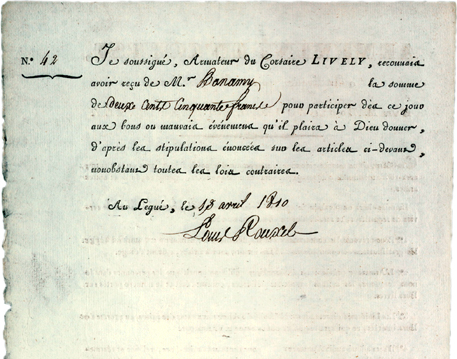 N.° 42
Je soussigné, Armateur du Corsaire LIVELY, reconnais
avoir reçu de M.r Bonamy la somme
de deux Cents Cinquante francs pour participer dès ce jour
aux bons ou mauvais événemens qu'il plaira à Dieu donner,
d'après les stipulations énoncées sur les articles ci-devant,
nonobstant toutes les lois contraires.
Au Legué, le 18 avril 1810
Louis Rouxel